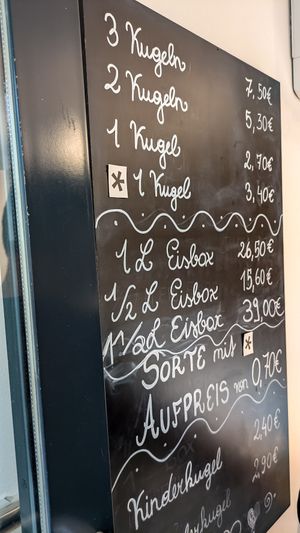 3 Kugeln 7,50€
2 Kugeln 5,30€
1 Kugel 2,70€
* 1 Kugel 3,40€
1 L Eisbox 26,50€
1/2 L Eisbox 15,60€
1 1/2 L Eisbox 39,00€
SORTE mit *
AUFPREIS von 0,70€
Kinderkugel 2,40€
2,90€